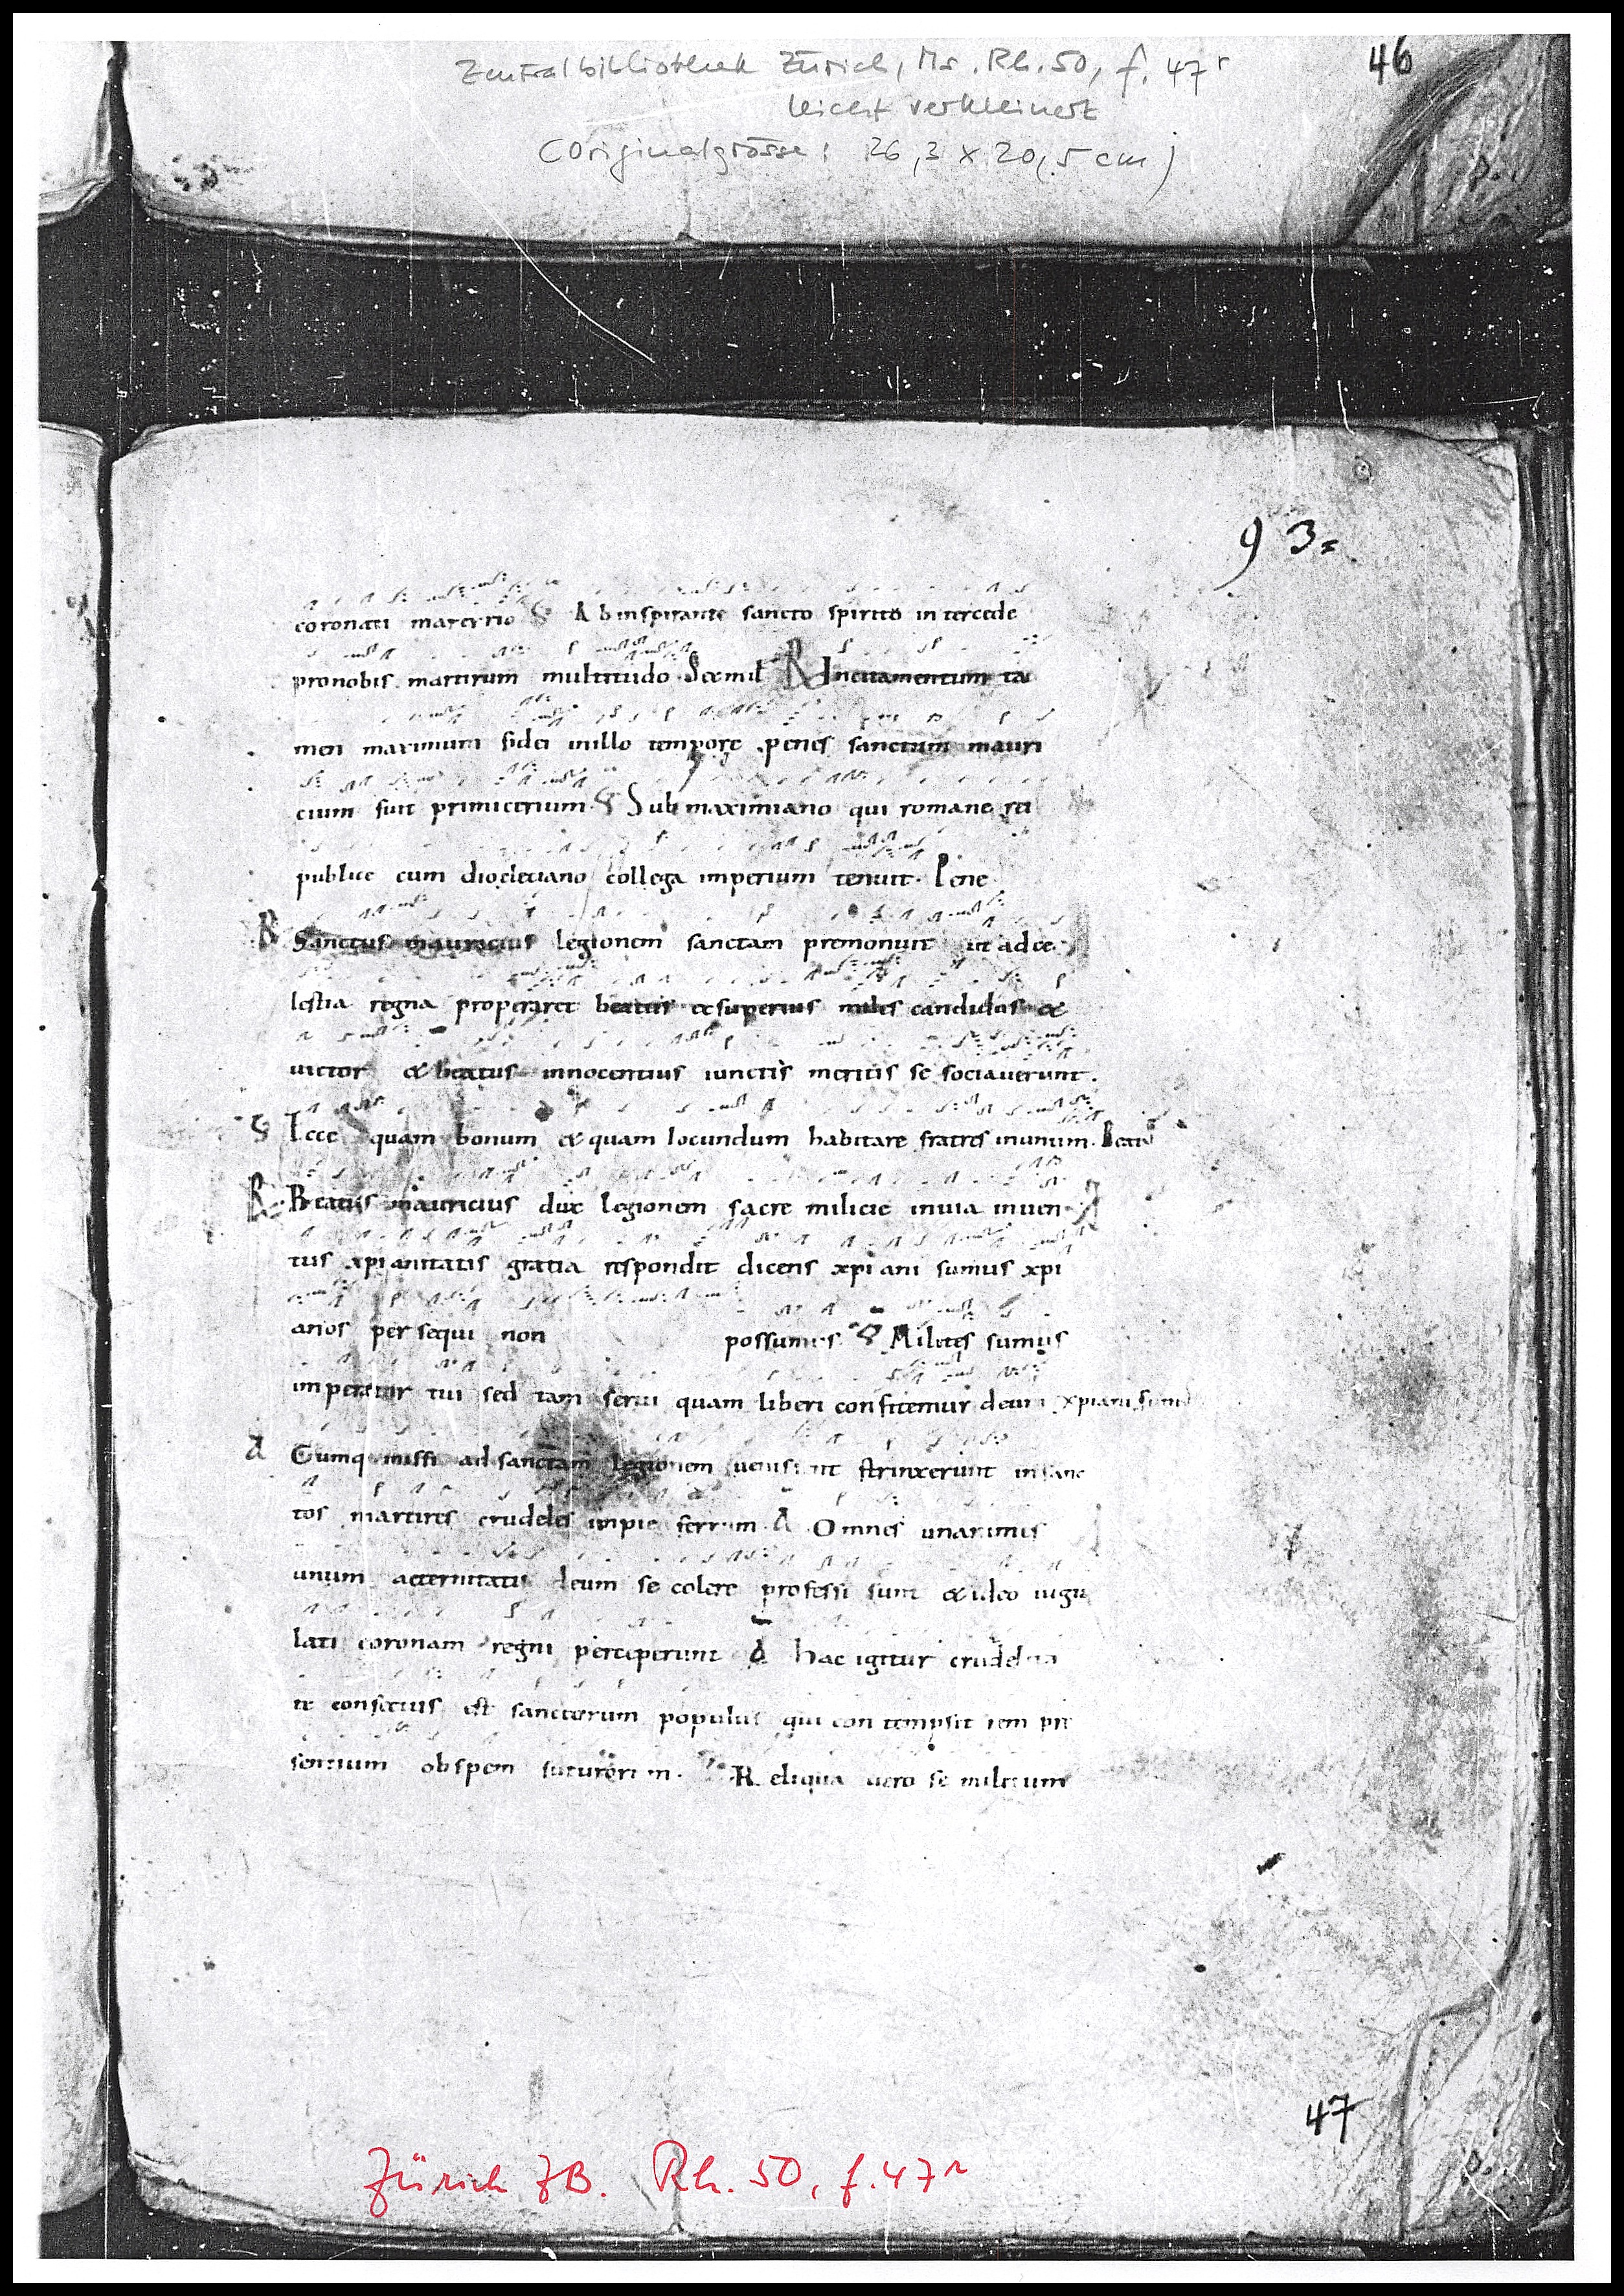 Zentralbibliothek Zürich, Ms. Rh. 50, f. 47r
46
leicht verkleinert
(Originalgrösse: 26,3 x 20,5 cm)
93
coronati martyrio V Ab inspirante sancto spiritu intercede
pronobis martirum multitudo Sex mil R Incitamentum ta
men maximum fidei inillo tempore penes sanctum mauri
cium fuit primicerium. V Sub maximiano qui romane rei
publice cum diocletiano collega imperium tenuit. Pene
R Sanctus mauricius legionem sanctam premonuit ut adce
lestia regna properaret beatus exsuperius miles candidus &
uictor & beatus innocentius iunctis meritis se sociauerunt.
V Ecce quam bonum & quam iocundum habitare fratres inunum. Beatus
R Beatus mauricius dux legionem sacre milicie inuia inuen
tus xpianitatis gratia respondit dicens xpiani sumus xpi
anos persequi non possumus V Milites sumus
imperator tui sed tam serui quam liberi confitemur deum xpiani sum
A Cumq missi ad sanctam legionem uenissent strinxerunt insanc
tos martires crudeles impie ferrum A Omnes unanimis
unum aeternitatis deum se colere professi sunt & ideo iugu
lati coronam regni perceperunt A hac igitur crudelita
te confectus est sanctorum populus qui contempsit rem pre
sentium obspem futurorum. R eliqua uero se militum
47
Zürich ZB. Rh. 50, f. 47r